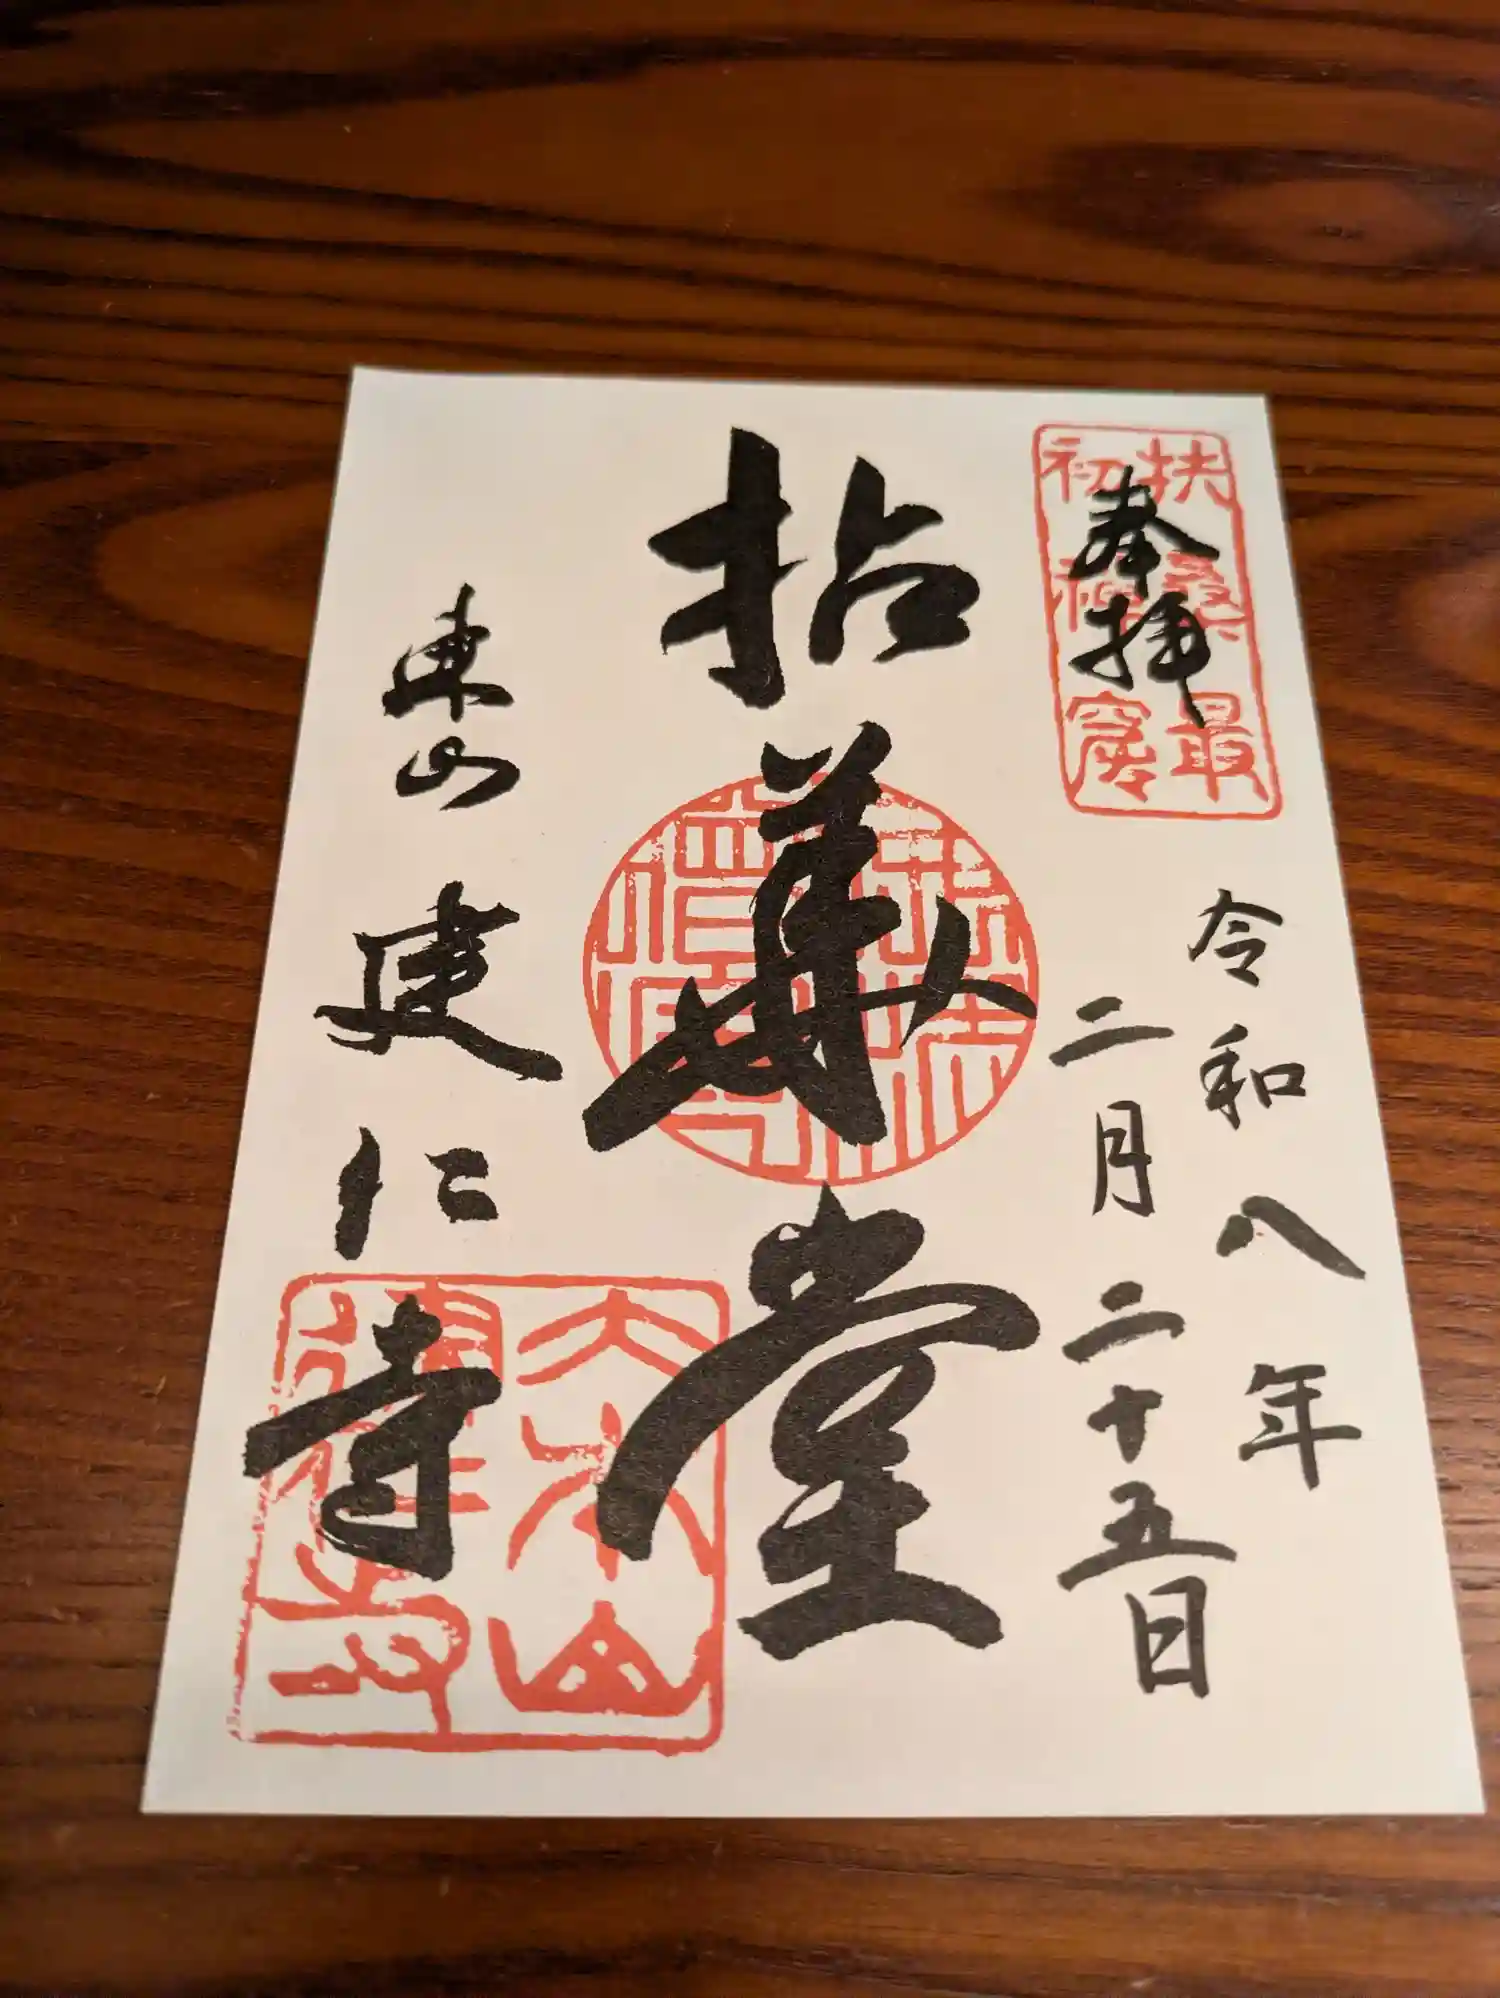 奉拝
扶桑最
初禅窟
令和八年
二月二十五日
拈華堂
東山
建仁寺
大本山